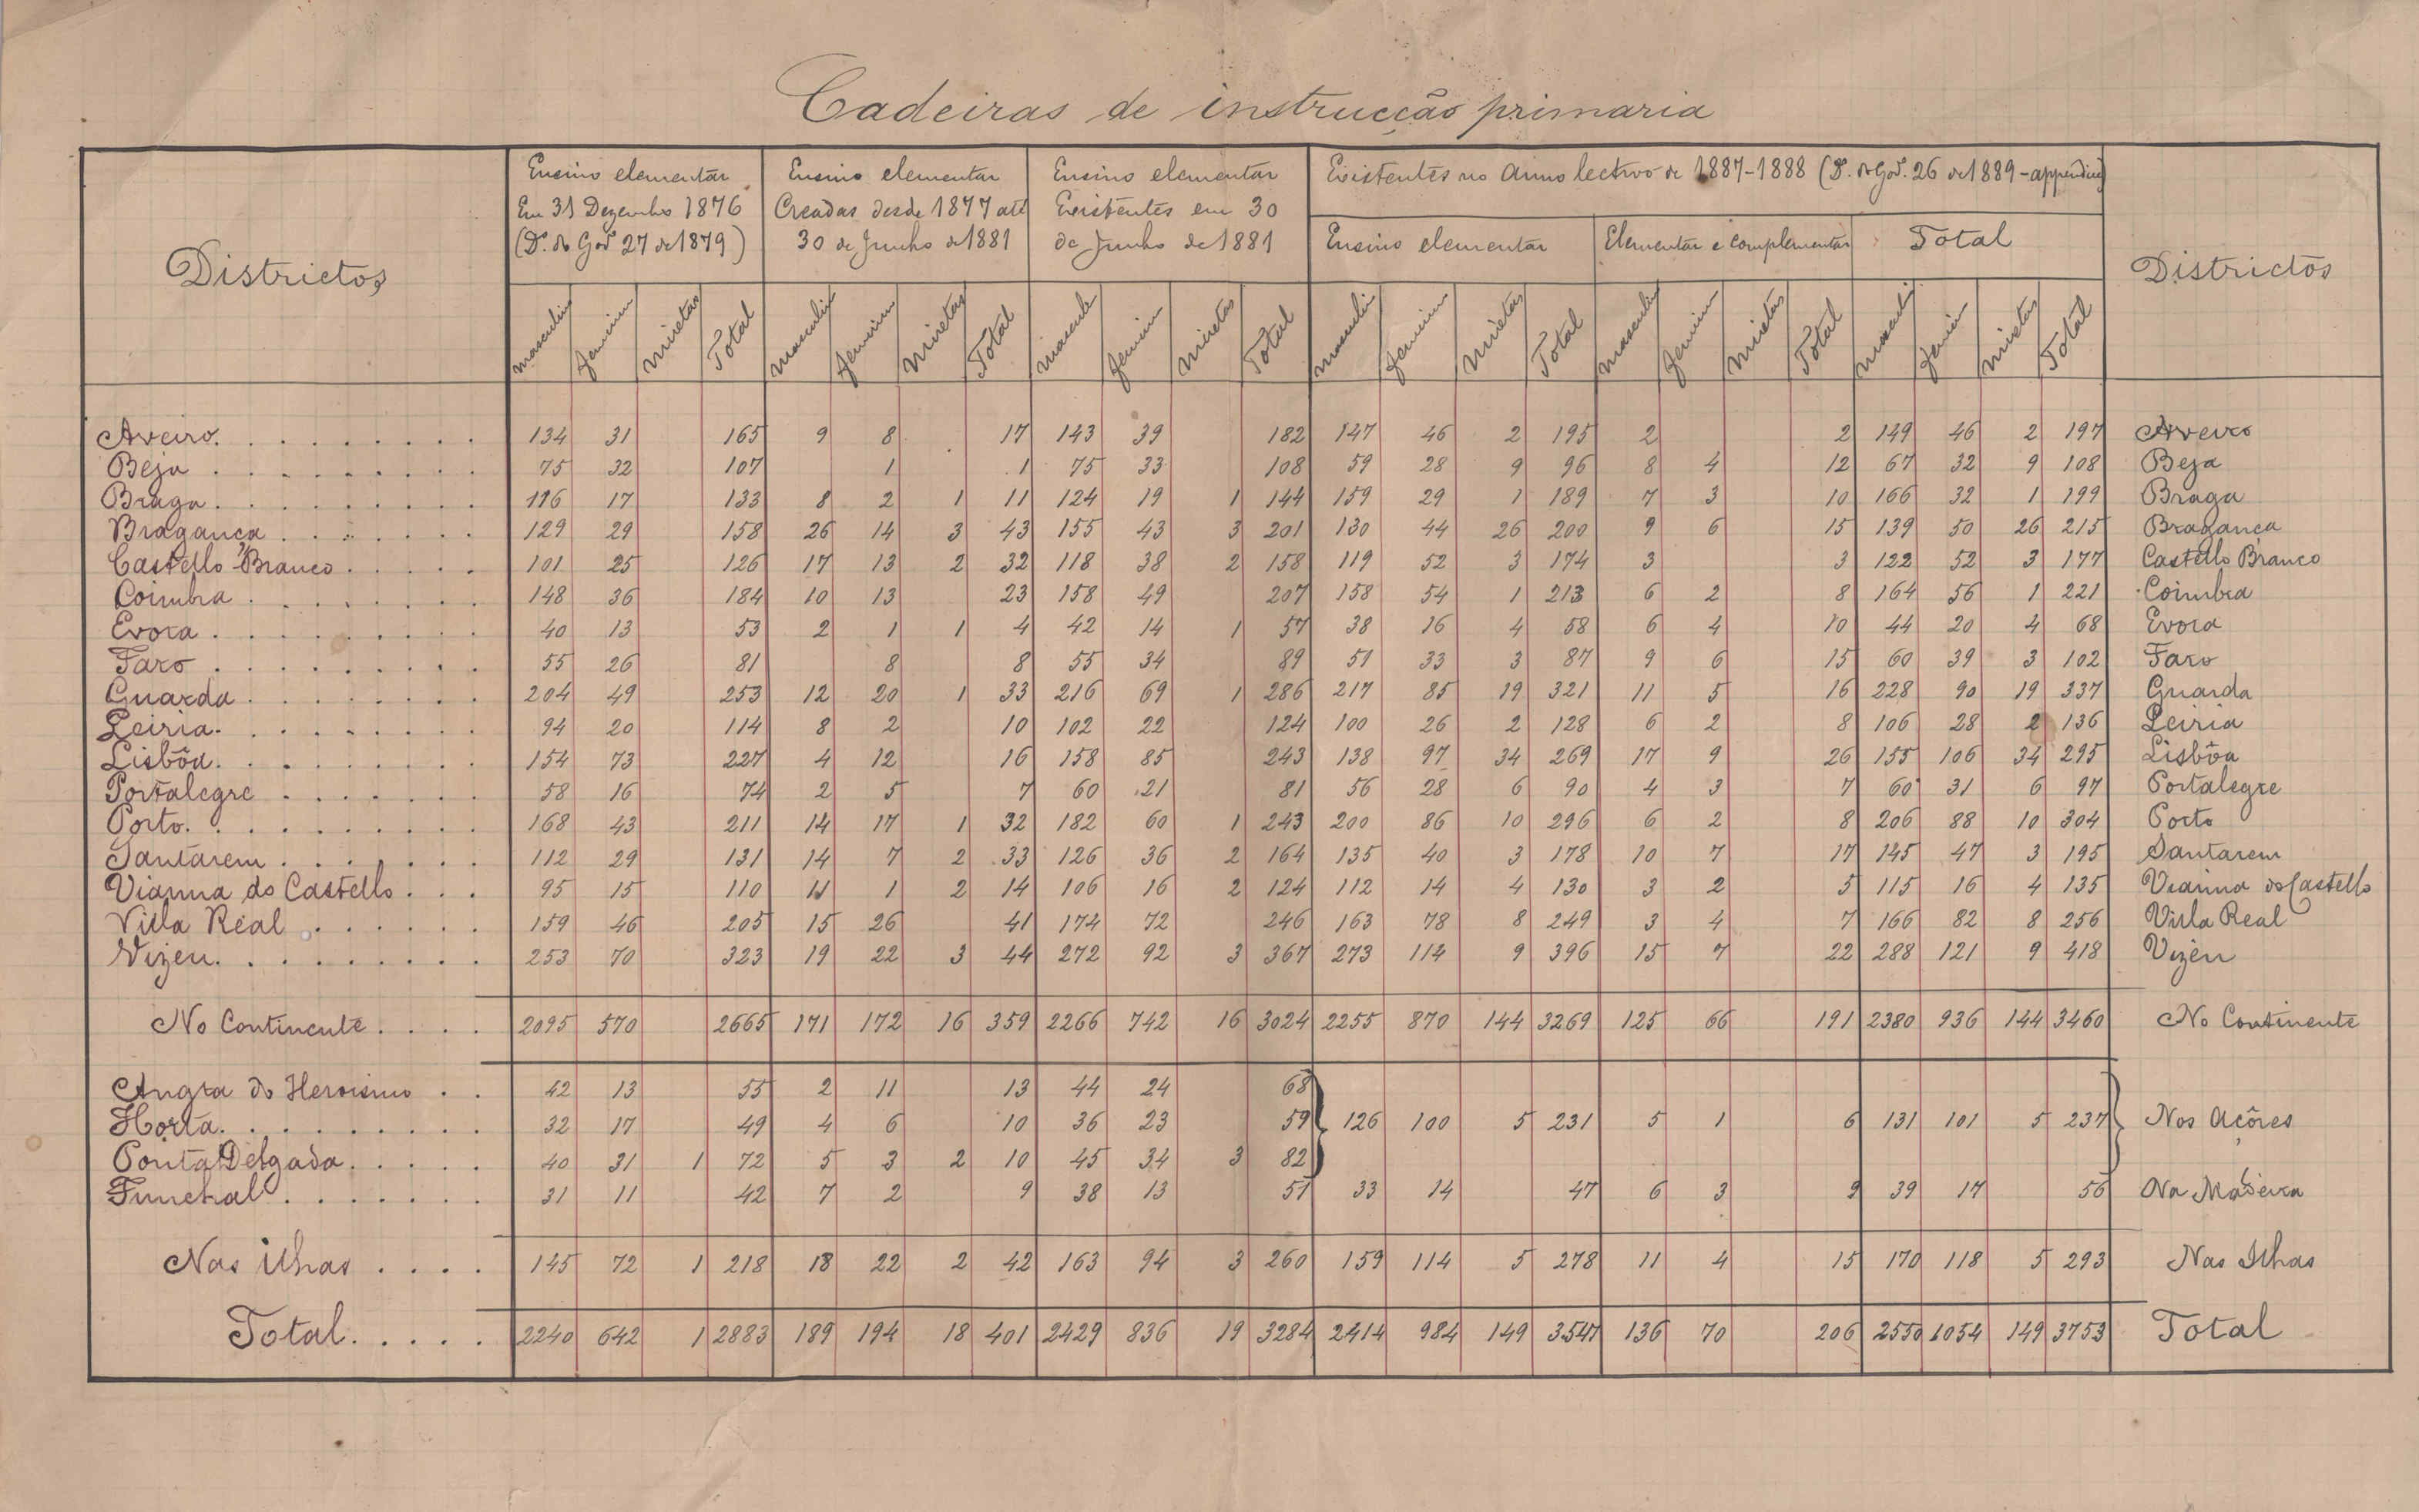 Cadeiras de instrucção primaria
Districtos
Ensino elementar
Em 31 Dezembro 1876
(D. do Gov. 27 de 1879)
Ensino elementar
Creadas desde 1877 até
30 de Junho de 1881
Ensino elementar
Existentes em 30
de Junho de 1881
Existentes no anno lectivo de 1887-1888 (D. do Gov. 26 de 1889-appendice)
Ensino elementar
Elementar e complementar
Total
Districtos
masculin feminin mixtas Total masculin feminin mixtas Total masculi feminin mixtas Total masculi feminin mixtas Total masculin feminin mixtas Total masculi femin mixtas Total
Aveiro 134 31 165 9 8 17 143 39 182 147 46 2 195 2 2 149 46 2 197 Aveiro
Beja 75 32 107 1 1 75 33 108 59 28 9 96 8 4 12 67 32 9 108 Beja
Braga 116 17 133 8 2 1 11 124 19 1 144 159 29 1 189 7 3 10 166 32 1 199 Braga
Bragança 129 29 158 26 14 3 43 155 43 3 201 130 44 26 200 9 6 15 139 50 26 215 Bragança
Castello Branco 101 25 126 17 13 2 32 118 38 2 158 119 52 3 174 3 3 122 52 3 177 Castello Branco
Coimbra 148 36 184 10 13 23 158 49 207 158 54 1 213 6 2 8 164 56 1 221 Coimbra
Evora 40 13 53 2 1 1 4 42 14 1 57 38 16 4 58 6 4 10 44 20 4 68 Evora
Faro 55 26 81 8 8 55 34 89 51 33 3 87 9 6 15 60 39 3 102 Faro
Guarda 204 49 253 12 20 1 33 216 69 1 286 217 85 19 321 11 5 16 228 90 19 337 Guarda
Leiria 94 20 114 8 2 10 102 22 124 100 26 2 128 6 2 8 106 28 2 136 Leiria
Lisbôa 154 73 227 4 12 16 158 85 243 138 97 34 269 17 9 26 155 106 34 295 Lisbôa
Portalegre 58 16 74 2 5 7 60 21 81 56 28 6 90 4 3 7 60 31 6 97 Portalegre
Porto 168 43 211 14 17 1 32 182 60 1 243 200 86 10 296 6 2 8 206 88 10 304 Porto
Santarem 112 29 131 14 7 2 33 126 36 2 164 135 40 3 178 10 7 17 145 47 3 195 Santarem
Vianna do Castello 95 15 110 11 1 2 14 106 16 2 124 112 14 4 130 3 2 5 115 16 4 135 Vianna do Castello
Villa Real 159 46 205 15 26 41 174 72 246 163 78 8 249 3 4 7 166 82 8 256 Villa Real
Vizeu 253 70 323 19 22 3 44 272 92 3 367 273 114 9 396 15 7 22 288 121 9 418 Vizeu
No Continente 2095 570 2665 171 172 16 359 2266 742 16 3024 2255 870 144 3269 125 66 191 2380 936 144 3460 No Continente
Angra do Heroismo 42 13 55 2 11 13 44 24 68
Horta 32 17 49 4 6 10 36 23 59 126 100 5 231 5 1 6 131 101 5 237 Nos Açôres
Ponta Delgada 40 31 1 72 5 3 2 10 45 34 3 82
Funchal 31 11 42 7 2 9 38 13 51 33 14 47 6 3 9 39 17 56 Na Madeira
Nas ilhas 145 72 1 218 18 22 2 42 163 94 3 260 159 114 5 278 11 4 15 170 118 5 293 Nas Ilhas
Total 2240 642 1 2883 189 194 18 401 2429 836 19 3284 2414 984 149 3547 136 70 206 2550 1054 149 3753 Total